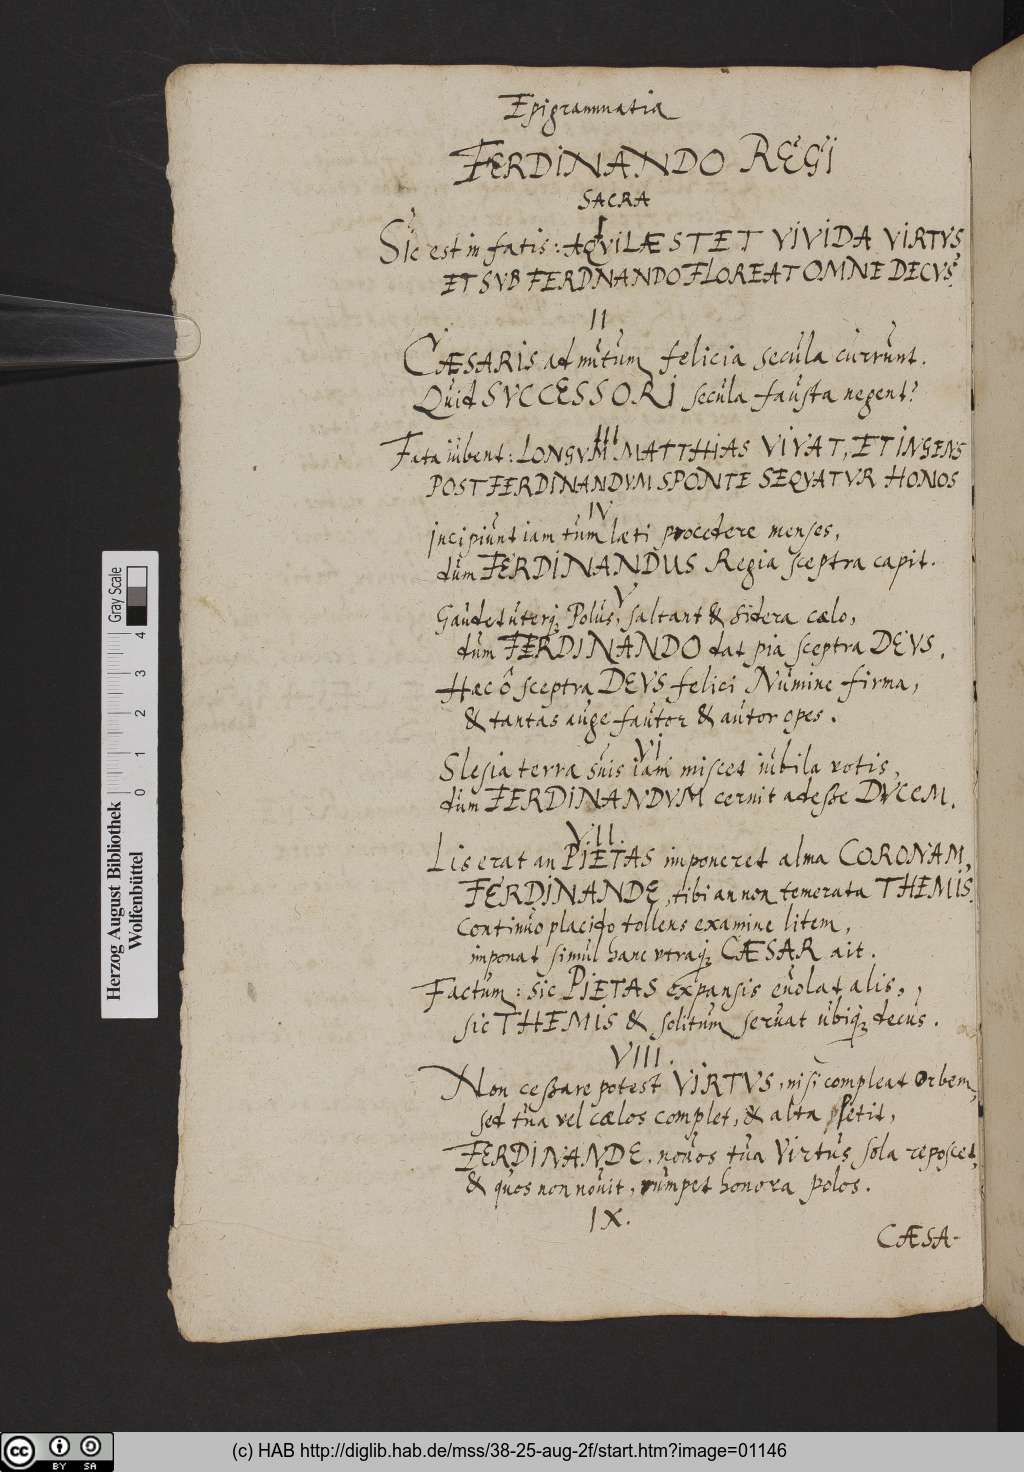 Epigrammatia
FERDINANDO REGI
SACRA
I
Sic est in fatis: AQVILÆ STET VIVIDA VIRTVS
ET SVB FERDNANDO FLOREAT OMNE DECVS.
II
CÆSARIS ad nutum felicia secula currunt.
Quid SVCCESSORI secula fausta negent?
III
Fata iubent: LONGVM MATTHIAS VIVAT, ET INGENS
POST FERDINANDVM SPONTE SEQVATVR HONOS
IV
Incipiunt iam tum læti procedere menses,
dum FERDINANDUS Regia sceptra capit.
V
Gaudet uterq; Polus, saltant & sidera cælo,
dum FERDINANDO dat pia sceptra DEVS.
Hæc ô sceptra DEVS felici Numine firma,
& tantas auge fautor & autor opes.
VI
Slesia terra suis iam miscet iubila votis,
dum FERDINANDVM cernit adesse DVCEM.
VII.
Lis erat an PIETAS imponeret alma CORONAM,
FERDINANDE, tibi an non temerata THEMIS.
Continuo placido tollens examine litem,
imponat simul hanc vtraq; CÆSAR ait.
Factum: sic PIETAS expansis euolat alis,,
sic THEMIS & solitum seruat ubiq; decus.
VIII.
Non cessare potest VIRTVS, nisi compleat Orbem,
sed tua vel cælos complet, & alta petit,
FERDINANDE. nouos tua Virtus sola reposcet,
& quos non nouit, rumpet honora polos.
IX.
CÆSA-
Gray Scale
0 1 2 3 4
Herzog August Bibliothek
Wolfenbüttel
cc BY SA
(c) HAB http://diglib.hab.de/mss/38-25-aug-2f/start.htm?image=01146